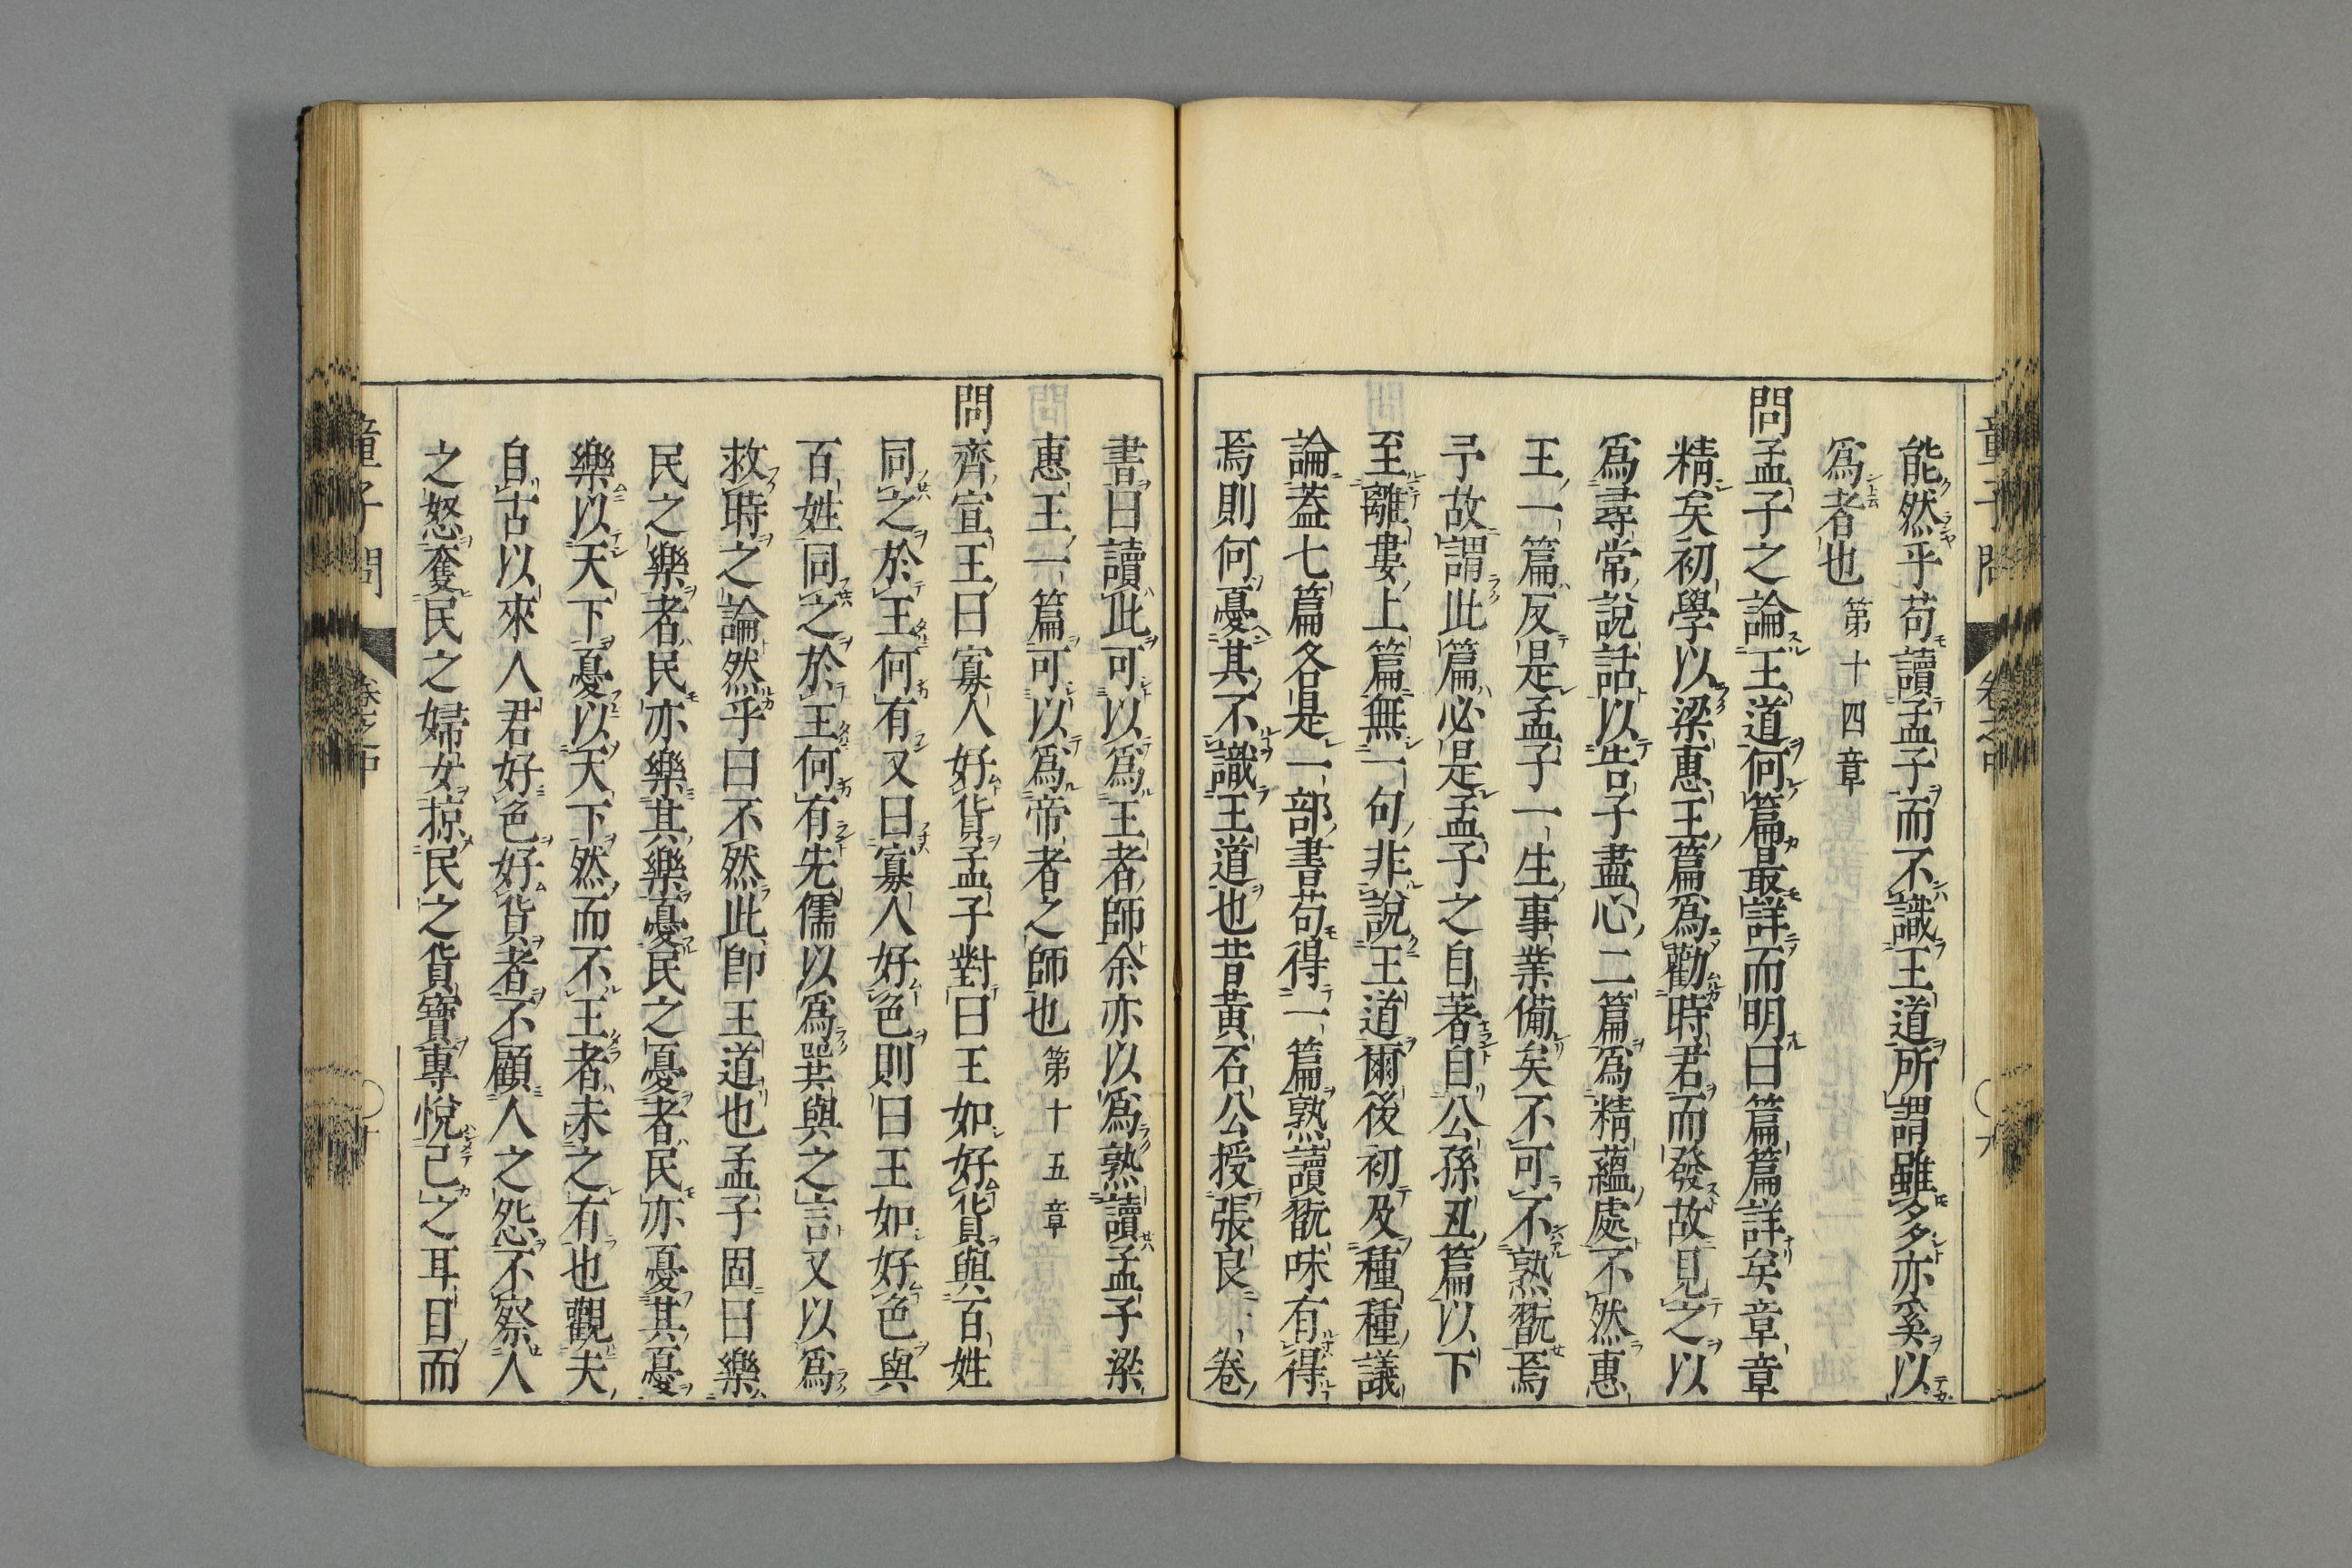 能然乎苟讀孟子而不識王道所謂雖多亦奚以
爲者也 第十四章
問孟子之論王道何篇最詳而明曰篇篇詳矣章章
精矣初學以梁惠王篇爲勸時君而發故見之以
爲尋常說話以告子盡心二篇爲精蘊處不然惠
王一篇反是孟子一生事業備矣不可不熟翫焉
予故謂此篇必是孟子之自著自公孫丑篇以下
至離婁上篇無一句非說王道爾後初及種種議
論蓋七篇各是一部書苟得一篇熟讀翫味有得
焉則何憂其不識王道也昔黃石公授張良一卷
書曰讀此可以爲王者師余亦以爲熟讀孟子梁
惠王一篇可以爲帝者之師也 第十五章
問齊宣王曰寡人好貨孟子對曰王如好貨與百姓
同之於王何有又曰寡人好色則曰王如好色與
百姓同之於王何有先儒以爲哭與之言又以爲
救時之論然乎曰不然此卽王道也孟子固曰樂
民之樂者民亦樂其樂憂民之憂者民亦憂其憂
樂以天下憂以天下然而不王者未之有也觀夫
自古以來人君好色好貨者不顧人之怨不察人
之怒奪民之婦女掠民之貨寶專悅己之耳目而
童子問 卷之中
童子問 卷之中